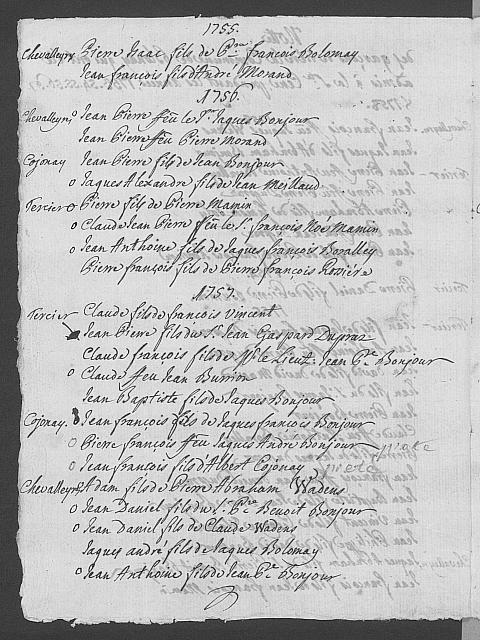 1755.
Chevalleyry Pierre Isaac fils de Pre françois Bolomay
Jean françois fils d'André Morand
1756.
Chevalleyry o Jean Pierre ffeu le Sr. Jaques Bonjour
Jean Pierre ffeu Pierre Morand
Cojonay Jean Pierre fils de Jean Bonjour
o Jaques Alexandre fils de Jean Meillaud
Tercier o Pierre fils de Pierre Mamin
o Claude Jean Pierre ffeu le Sr. françois Noé Mamin
o Jean Anthoine fils de Jaques françois Boralley
Pierre françois fils de Pierre françois Rovière
1757.
Tercier Claude fils de françois Vincent
Jean Pierre fils du Sr. Jean Gaspard Dupraz
Claude françois fils de Lieut. Jean Pre Bonjour
o Claude ffeu Jean Burrion
Jean Baptiste fils de Jaques Bonjour
Cojonay. o Jean françois fils de Jaques françois Bonjour
o Pierre françois ffeu Jaques André Bonjour
o Jean françois fils d'Albert Cojonay
Chevalleyry Adam fils de Pierre Abraham Wadens
o Jean Daniel fils du Sr. Pre Benoit Bonjour
o Jean Daniel fils de Claude Wadens
Jaques andré fils de Jaques Bolomay
o Jean Anthoine fils de Jean Pre Bonjour